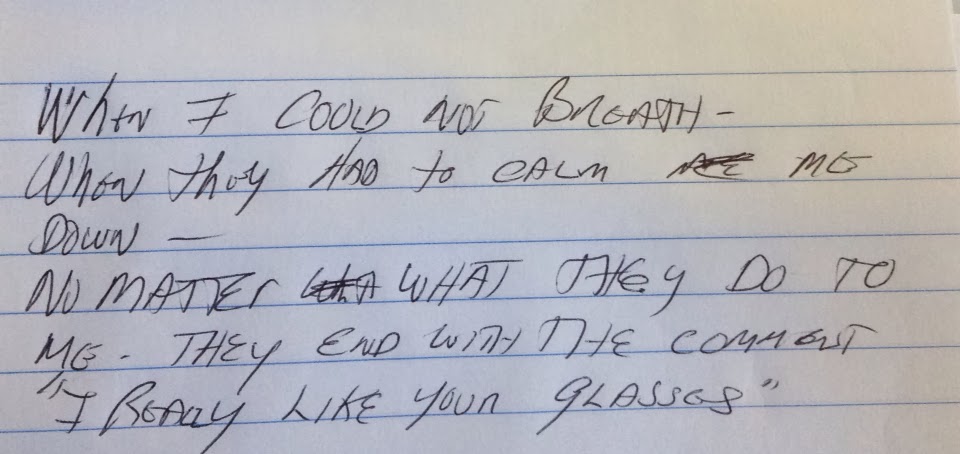 WHEN I COULD NOT BREATH -
WHEN they HAD to CALM ME
DOWN —
NO MATTER WHAT THEY DO TO
ME - THEY END WITH THE COMMENT
"I REALLY LIKE YOUR GLASSES"